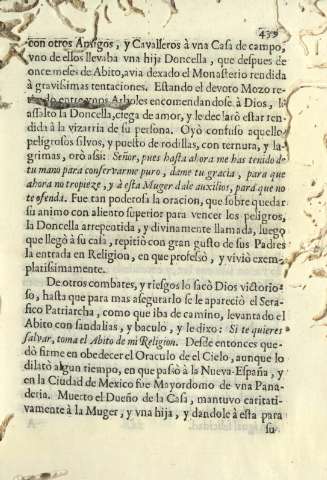 439
con otros Amigos, y Cavalleros à vna Casa de campo,
vno de ellos llevaba vna hija Doncella, que despues de
once meses de Abito, avia dexado el Monasterio rendida
à gravisimas tentaciones. Estando el devoto Mozo re-
entre vnos Arboles encomendandose à Dios, le
assaltò la Doncella, ciega de amor, y le declarò estar ren-
dida à la vizarria de su persona. Oyò confuso aquellos
peligrosos silvos, y puesto de rodillas, con ternura, y la-
grimas, orò assi: Señor, pues hasta ahora me has tenido de
tu mano para conservarme puro, dame tu gracia, para que
ahora no tropieze, y à esta Muger dale auxilios, para que no
te ofenda. Fue tan poderosa la oracion, que sobre quedar
su animo con aliento superior para vencer los peligros,
la Doncella arrepentida, y divinamente llamada, luego
que llegò à su casa, repitiò con gran gusto de sus Padres
la entrada en Religion, en que professò, y viviò exem-
plarissimamente.
De otros combates, y riesgos lo sacò Dios victorio-
so, hasta que para mas asegurarlo se le apareciò el Sera-
fico Patriarcha, como que iba de camino, levantado el
Abito con sandalias, y baculo, y le dixo: Si te quieres
salvar, toma el Abito de mi Religion. Desde entonces que-
dò firme en obedecer el Oraculo de el Cielo, aunque lo
dilatò algun tiempo, en que passò à la Nueva-España, y
en la Ciudad de Mexico fue Mayordomo de vna Pana-
deria. Muerto el Dueño de la Casa, mantuvo caritati-
vamente à la Muger, y vna hija, y dandole à esta para
su